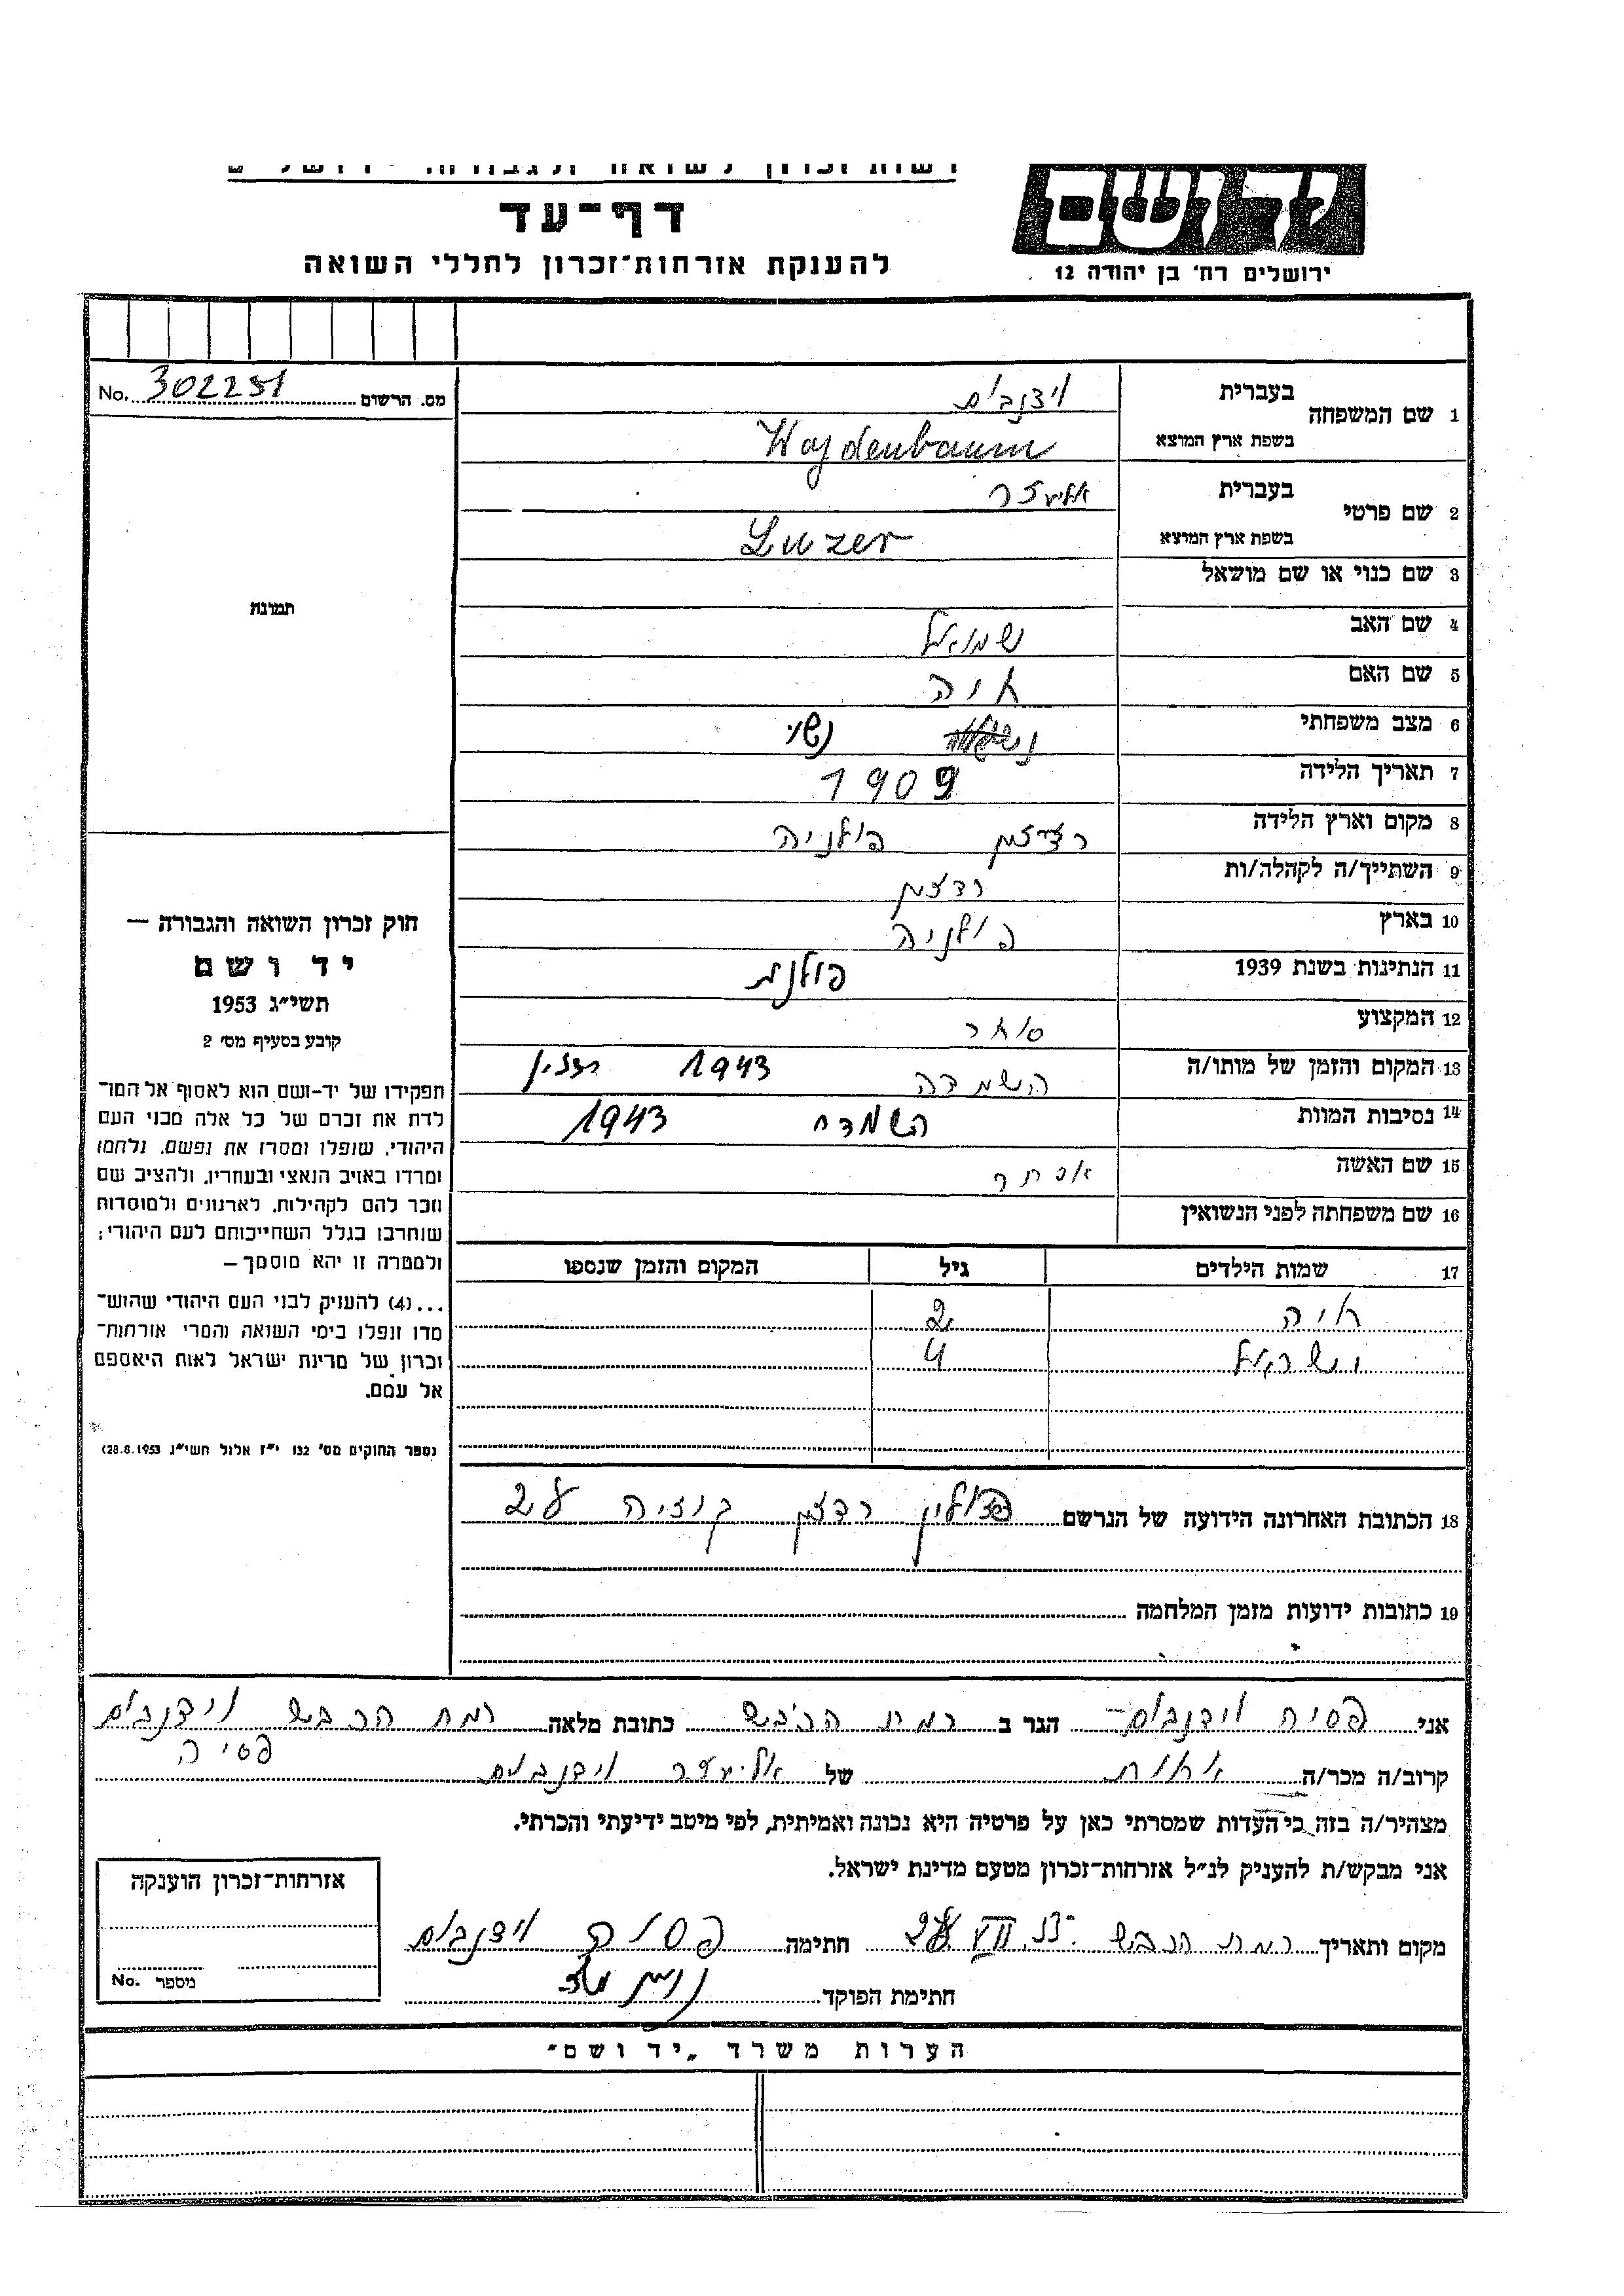 יד ושם
ירושלים רח׳ בן יהודה 12
דף־עד
להענקת אזרחות־זכרון לחללי השואה
מס. הרשום 302251 No.
1 שם המשפחה בעברית וידנבוים
בשפת ארץ המוצא Wajdenbaum
2 שם פרטי בעברית אליעזר
בשפת ארץ המוצא Luzer
3 שם כנוי או שם מושאל
4 שם האב שמואל
5 שם האם חיה
6 מצב משפחתי נשוי
7 תאריך הלידה 1909
8 מקום וארץ הלידה פולניה
9 השתייך/ה לקהלה/ות
10 בארץ פולניה
11 הנתינות בשנת 1939 פולנית
12 המקצוע סוחר
13 המקום והזמן של מותו/ה השמדה 1943
14 נסיבות המוות השמדה 1943
15 שם האשה אסתר
16 שם משפחתה לפני הנשואין
17 שמות הילדים גיל המקום והזמן שנספו
חיה 2
ישראל 4
18 הכתובת האחרונה הידועה של הנרשם פולין
19 כתובות ידועות מזמן המלחמה
תמונה
חוק זכרון השואה והגבורה —
יד ושם
תשי״ג 1953
קובע בסעיף מס׳ 2
תפקידו של יד-ושם הוא לאסוף אל המו־
לדת את זכרם של כל אלה מבני העם
היהודי, שנפלו ומסרו את נפשם, נלחמו
ומרדו באויב הנאצי ובעוזריו, ולהציב שם
וזכר להם לקהילות, לארגונים ולמוסדות
שנחרבו בגלל השתייכותם לעם היהודי;
ולמטרה זו יהא מוסמך –
...(4) להעניק לבני העם היהודי שהוש־
מדו ונפלו בימי השואה והמרי אזרחות־
זכרון של מדינת ישראל לאות היאספם
אל עמם.
(ספר החוקים מס׳ 132 י״ז אלול תשי״ג 28.8.1953)
אני פסיה וידנבוים הגר ב רמת הכבש כתובת מלאה רמת הכבש וידנבוים
פסיה
קרוב/ה מכר/ה אחות של אליעזר וידנבוים
מצהיר/ה בזה כי העדות שמסרתי כאן על פרטיה היא נכונה ואמיתית, לפי מיטב ידיעתי והכרתי.
אני מבקש/ת להעניק לנ״ל אזרחות-זכרון מטעם מדינת ישראל.
מקום ותאריך רמת הכבש חתימה פסיה וידנבוים
חתימת הפוקד
אזרחות-זכרון הוענקה
מספר No.
הערות משרד „יד ושם״